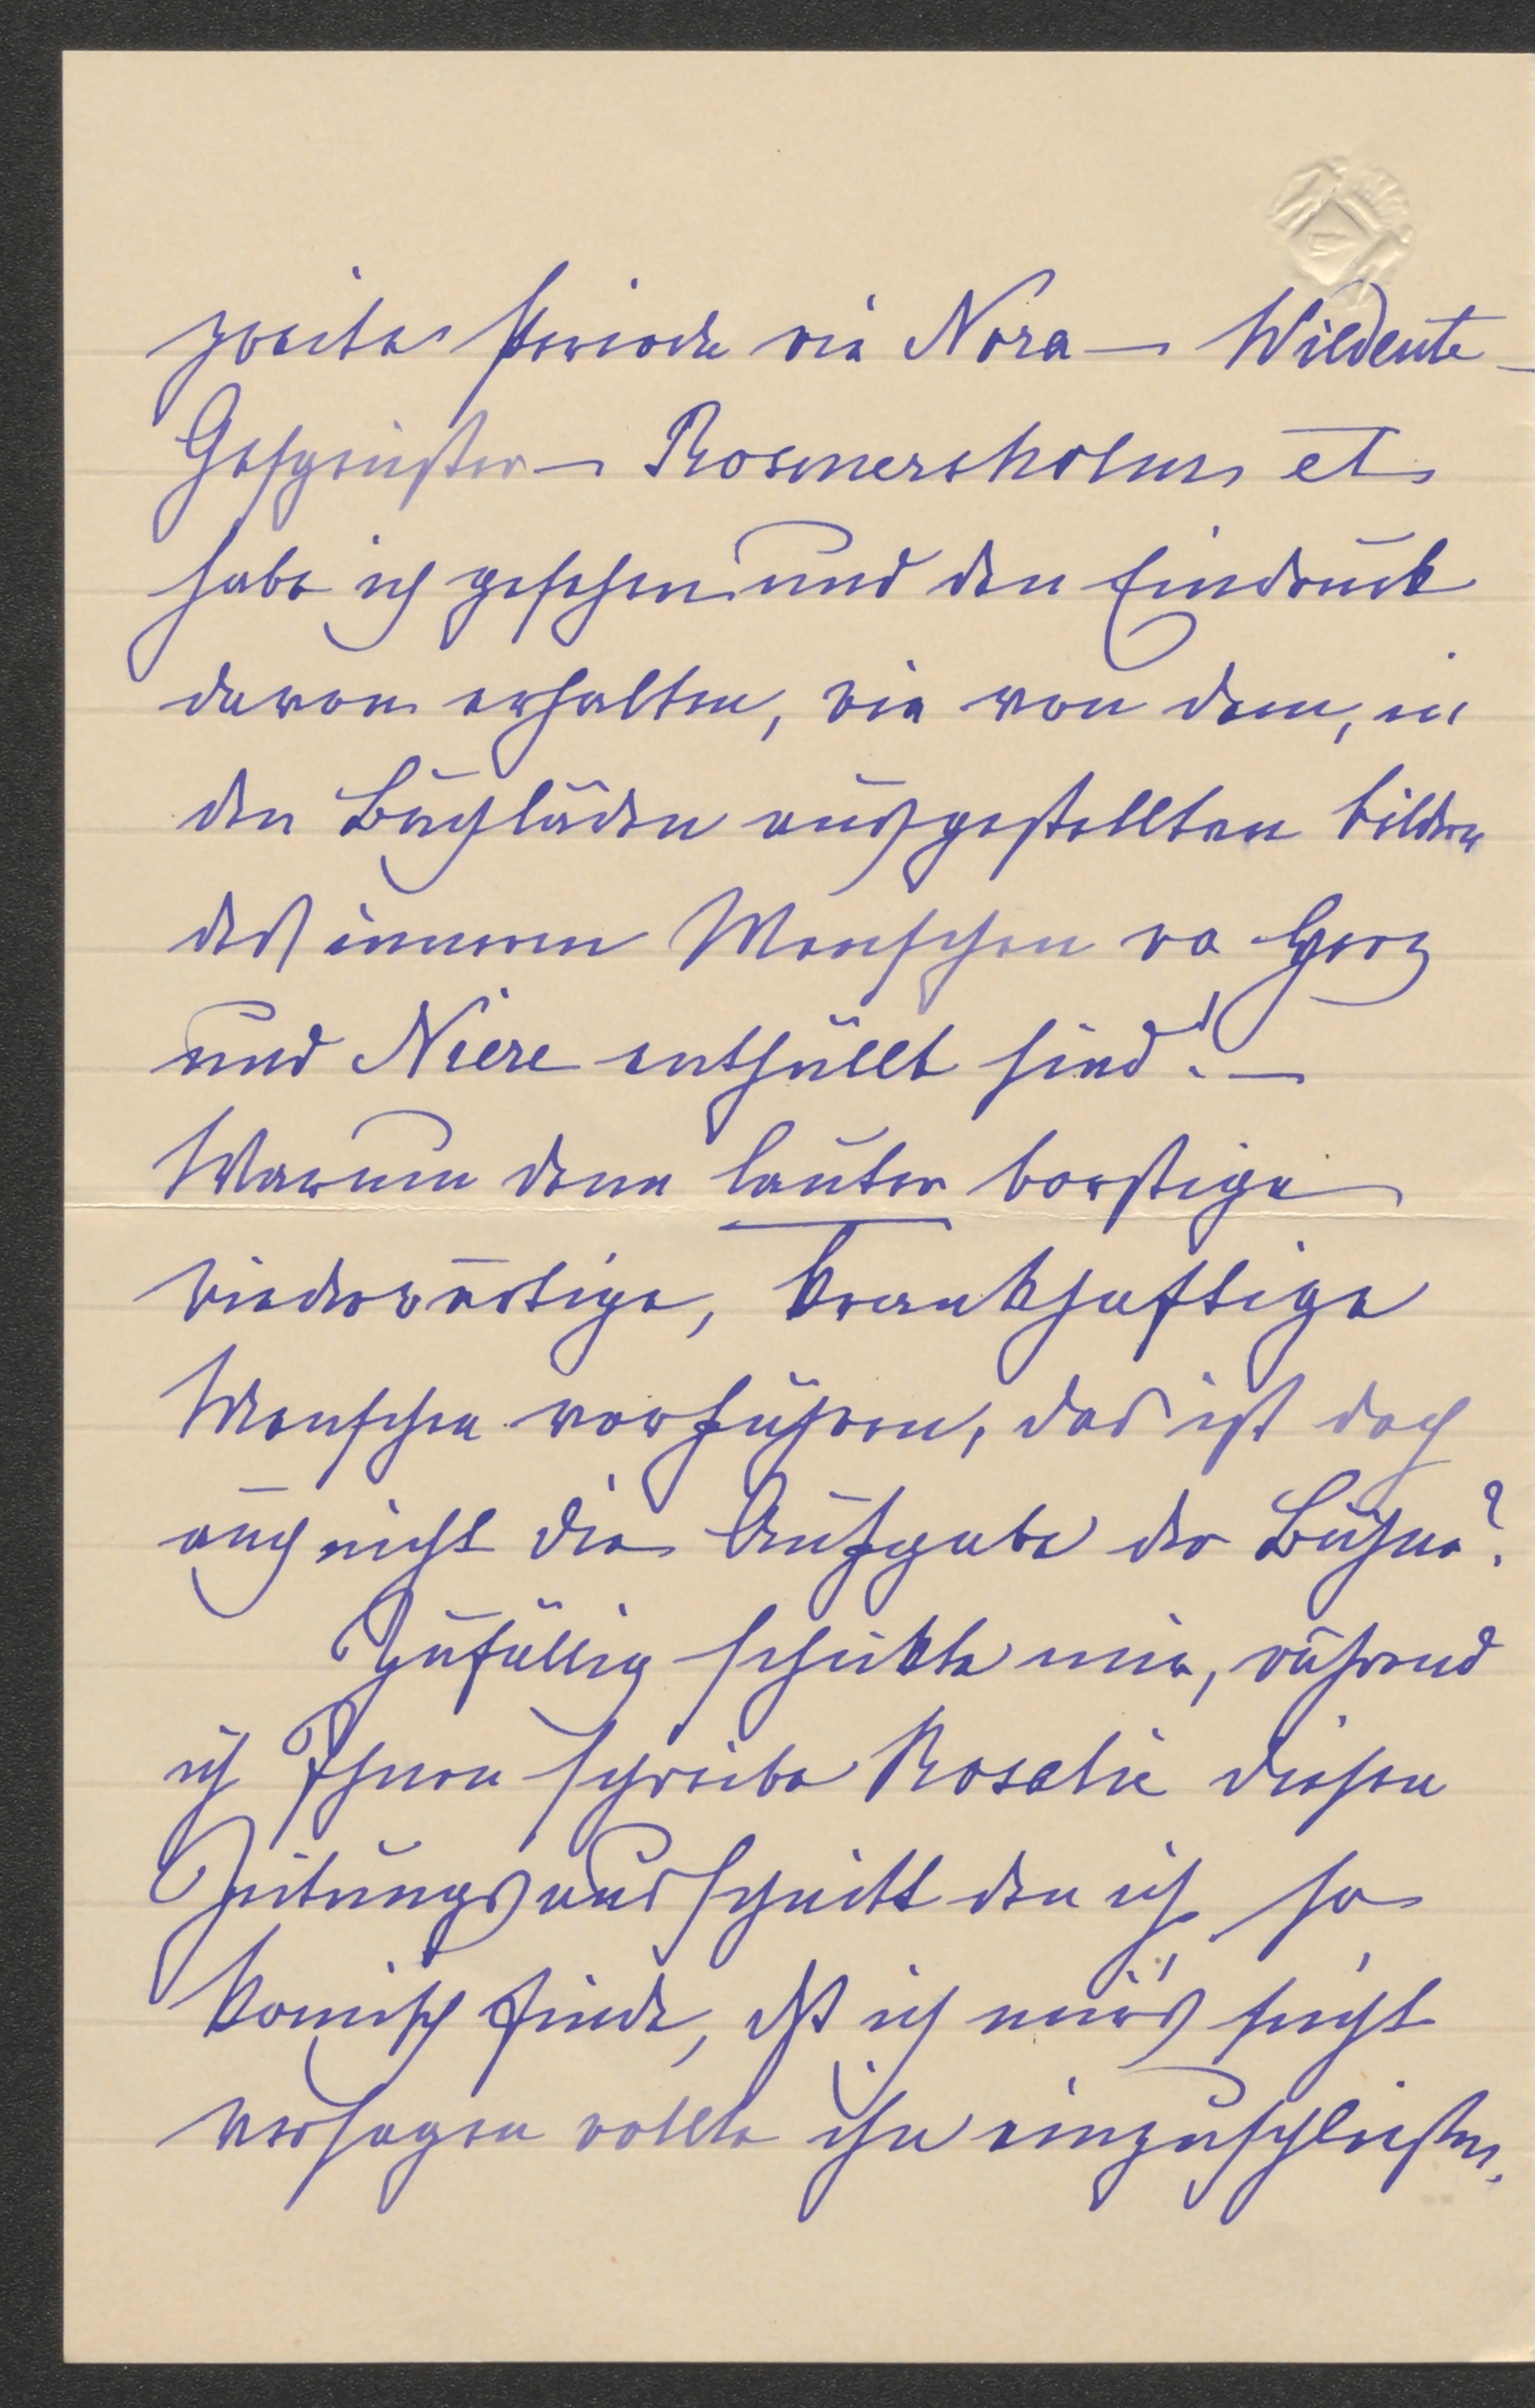 zweite Periode wie Nora – Wildente –
Gespenster – Rosmersholm et
habe ich gesehen und den Eindruck
davon erhalten, wie von dem, in
den Buchläden ausgestellten bildern
des inneren Menschen wo Herz
und Niere enthüllt sind! –
Warum denn lauter borstige
wiederwärtige, krankhaftige
Menschen vorführen, das ist doch
auch nicht die Aufgabe der Bühne?
Zufällig schikte mir, während
ich Ihnen schreibe Rosalie diesen
Zeitungsausschnitt den ich so
komisch finde, dß ich mirs nicht
versagen wollte ihn einzuschließen.